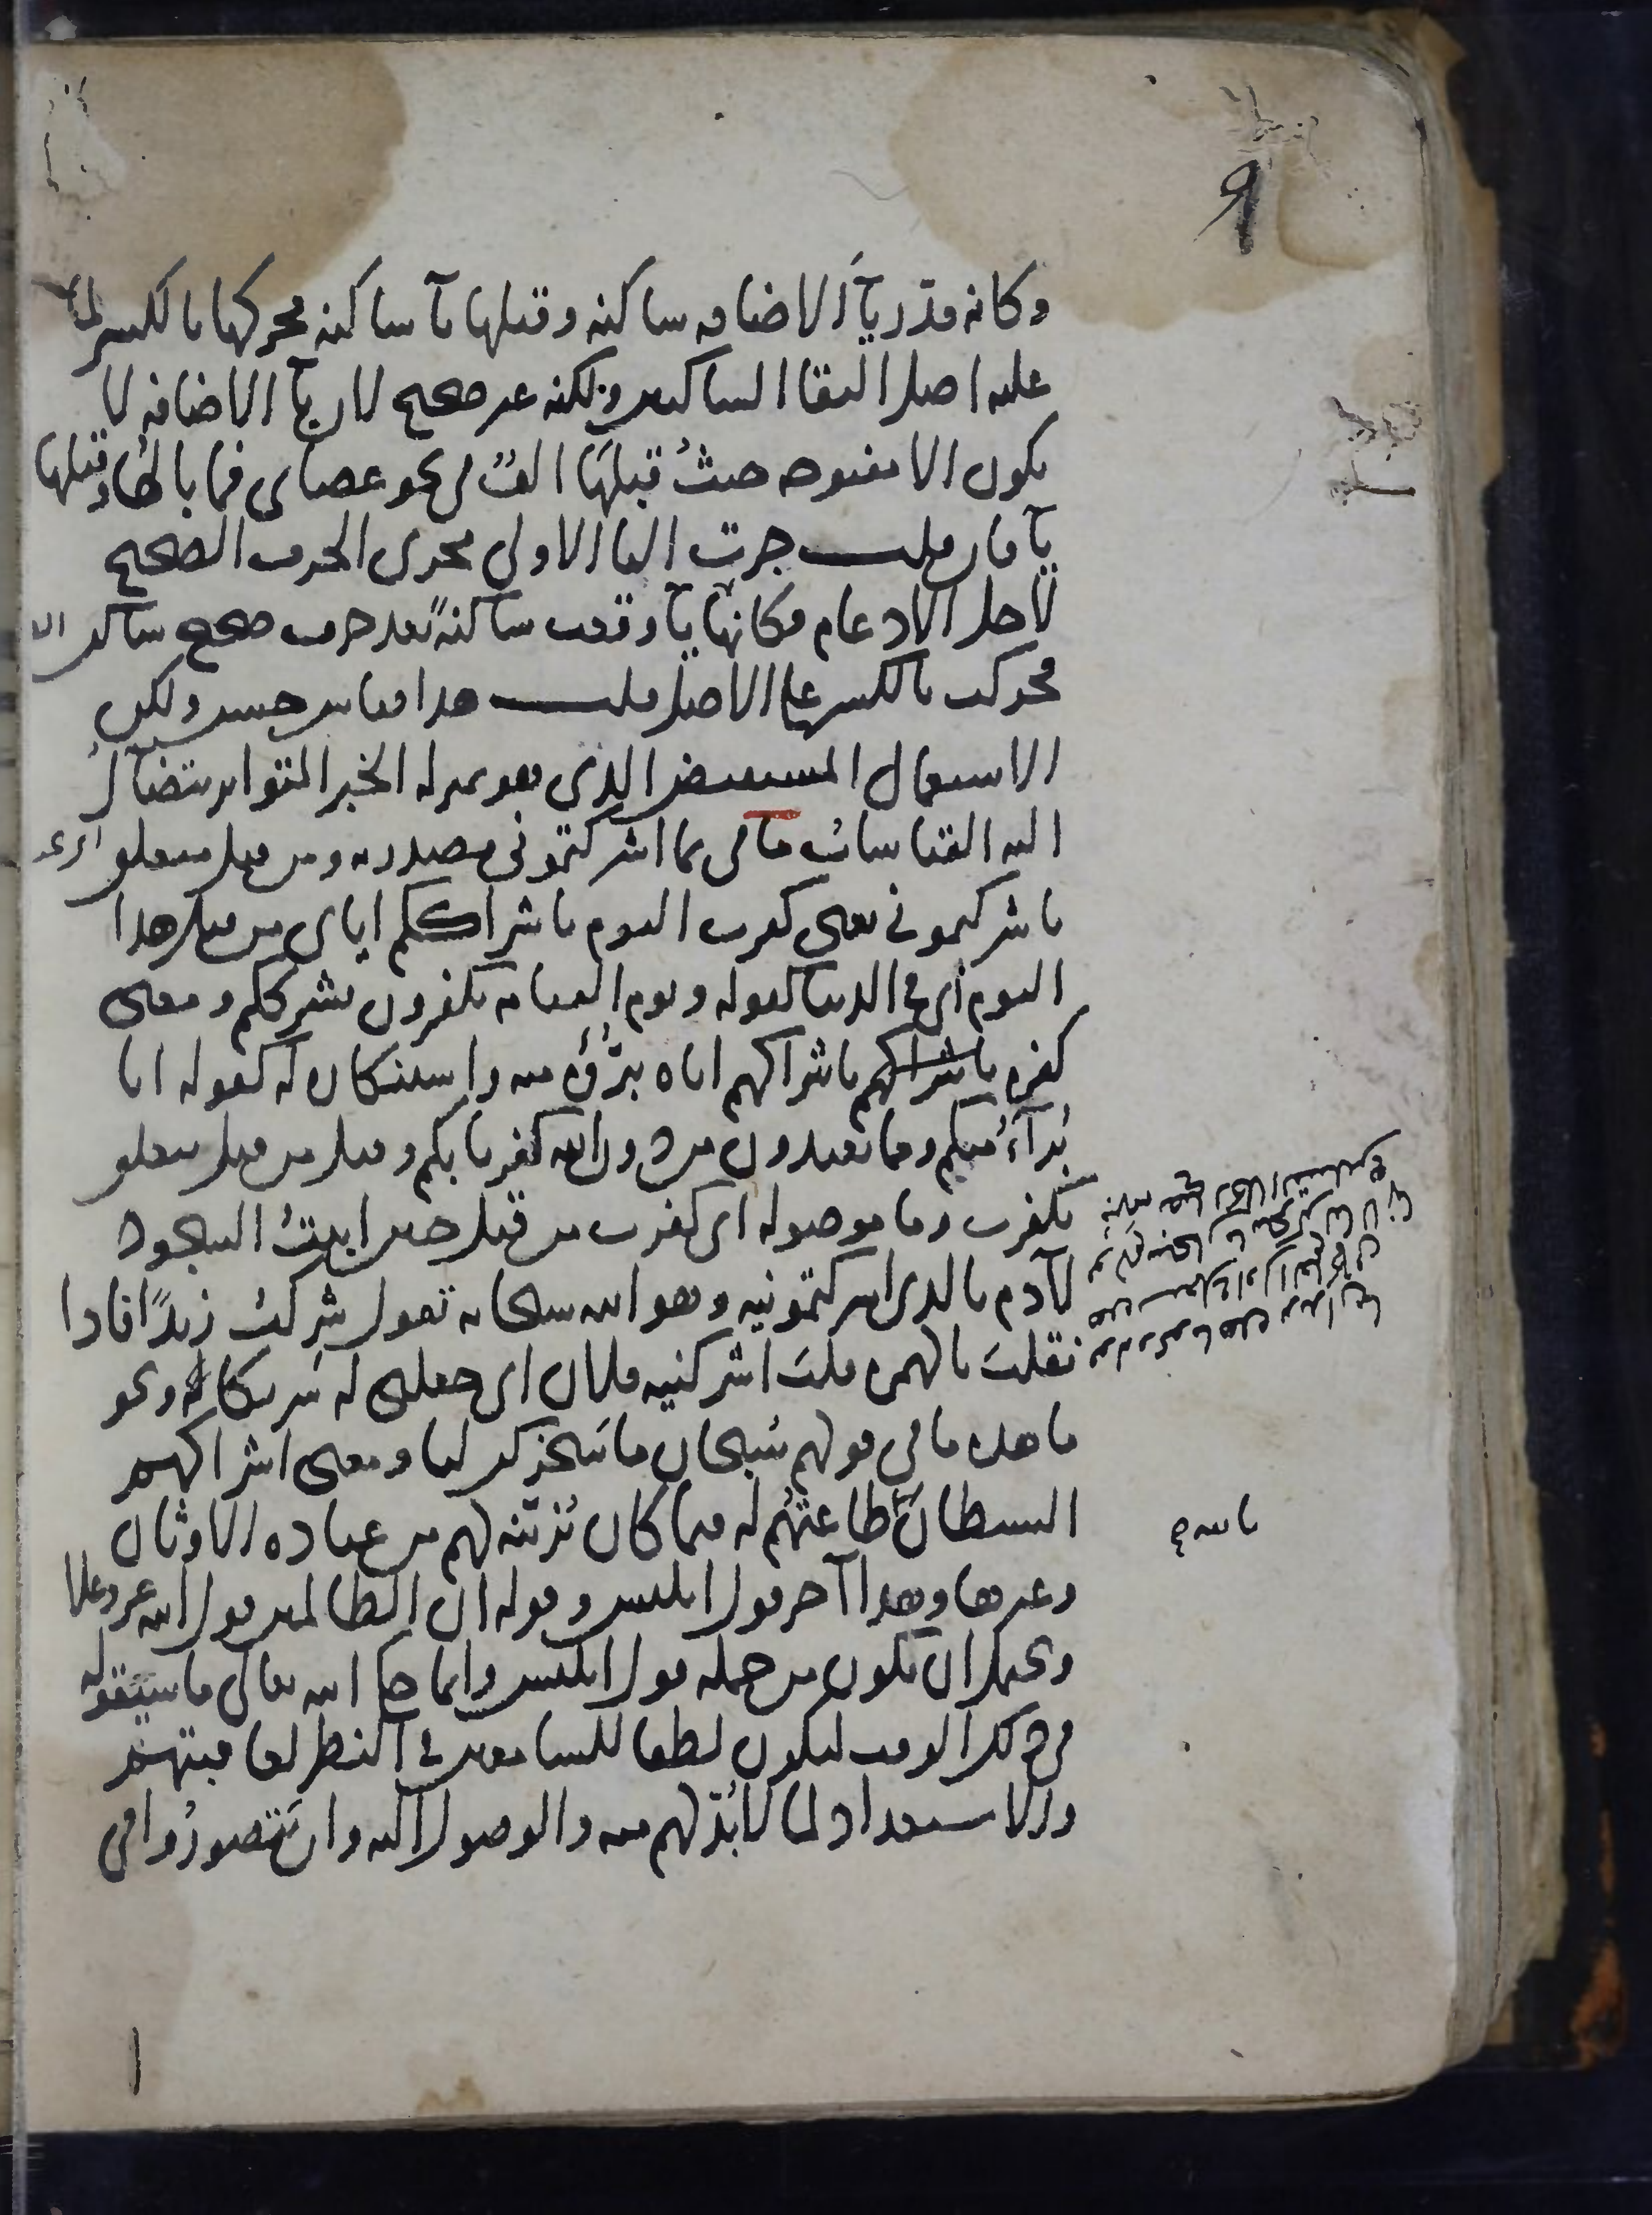 وكانه قدر يآء الاضافه ساكنه وقبلها يآ ساكنه فحركها بالكسر لما
عليه اصل التقا الساكنين ولكنه غير صحيح لان يآ الاضافه لا
يكون الا مفتوحه حيثُ قبلهَا الفٌ في نحو عصاى فما بالها وقبلها
يآ فان قلت جرت اليا الاولى مجرى الحرف الصحيح
لاجل الادغام فكانها يآ وقعت ساكنةً بعد حرف صحيح ساكن
فحركت بالكسر على الاصل قلت هذا قياس حسن ولكن
الاستعمال المستفيض الذي هو بمنزله الخبر المتواتر يتضآل
اليه القياسات ما في بما اشركتموني مصدريه ومن قبل متعلق
باشركتموني يعني كفرت اليوم باشراككم اياى من قبل هذا
اليوم اى في الدنيا كقوله ويوم القيامه يكفرون بشرككم ومعنى
كفره باشراكهم باشراكهم اياه تبرّؤه منه واستنكاره له كقوله انا
بُرآءُ منكم ومما تعبدون من دون الله كفرنا بكم وقيل من قبل يتعلق
بكفرت وما موصوله اى كفرت من قبل حين ابيتُ السجود
لآدم بالذى اشركتمونيه وهو الله سبحانه تقول شركتُ زيدًا فاذا
نقلتَ بالهمزه قلتَ اشركنيه فلان اى جعلني له شريكا ونحو
ما هذه ما في قولهم سُبحان ما سَخركن لنا ومعنى اشراكهم
الشيطانَ طاعتهُم له فيما كان يُزيّنه لهم من عباده الاوثان
وغيرها وهذا آخر قول ابليس وقوله ان الظالمين قول الله عز وعلا
ويحتمل ان يكون من جمله قول ابليس وانما حكى الله تعالى ما سيقوله
في ذلك الوقت ليكون لطفا للسامعين في النظر لعاقبتهم
والاستعداد لما لابُدّ لهم منه والوصول اليه وان يَتصورُوا في
بالله